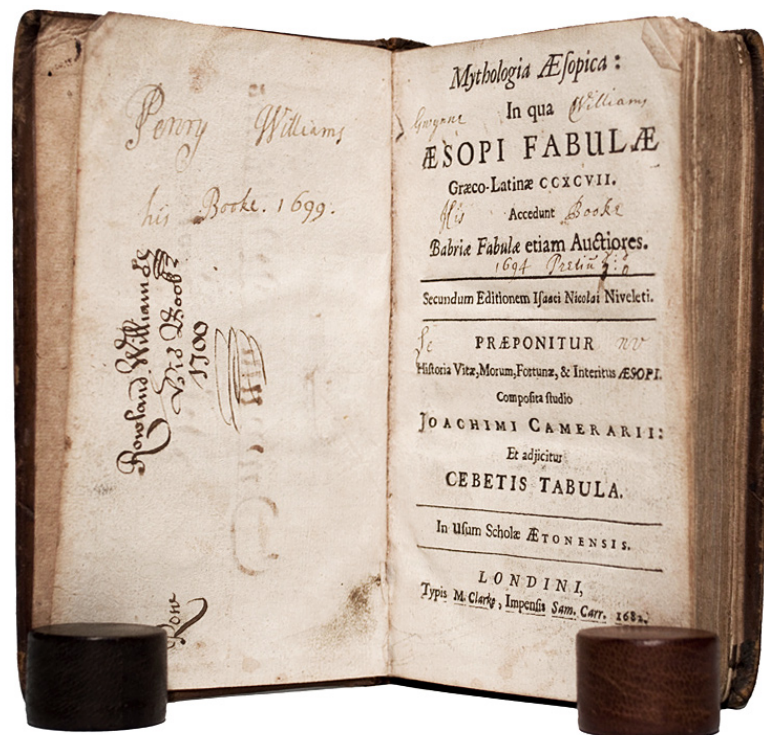 Penry Williams
his Booke. 1699.
Rowland Williams
His Book
1700
Row
Mythologia Æſopica:
In qua
Williams
ÆSOPI FABULÆ
Græco-Latinæ CCXCVII.
His Booke
Accedunt
Babriæ Fabulæ etiam Auctiores.
1694
Secundum Editionem Iſaaci Nicolai Niveleti.
PRÆPONITUR
Hiſtoria Vitæ, Morum, Fortunæ, & Interitus ÆSOPI.
Compoſita ſtudio
JOACHIMI CAMERARII:
Et adjicitur
CEBETIS TABULA.
In Uſum Scholæ ÆTONENSIS.
LONDINI,
Typis M. Clarke, Impenſis Sam. Carr. 1682.